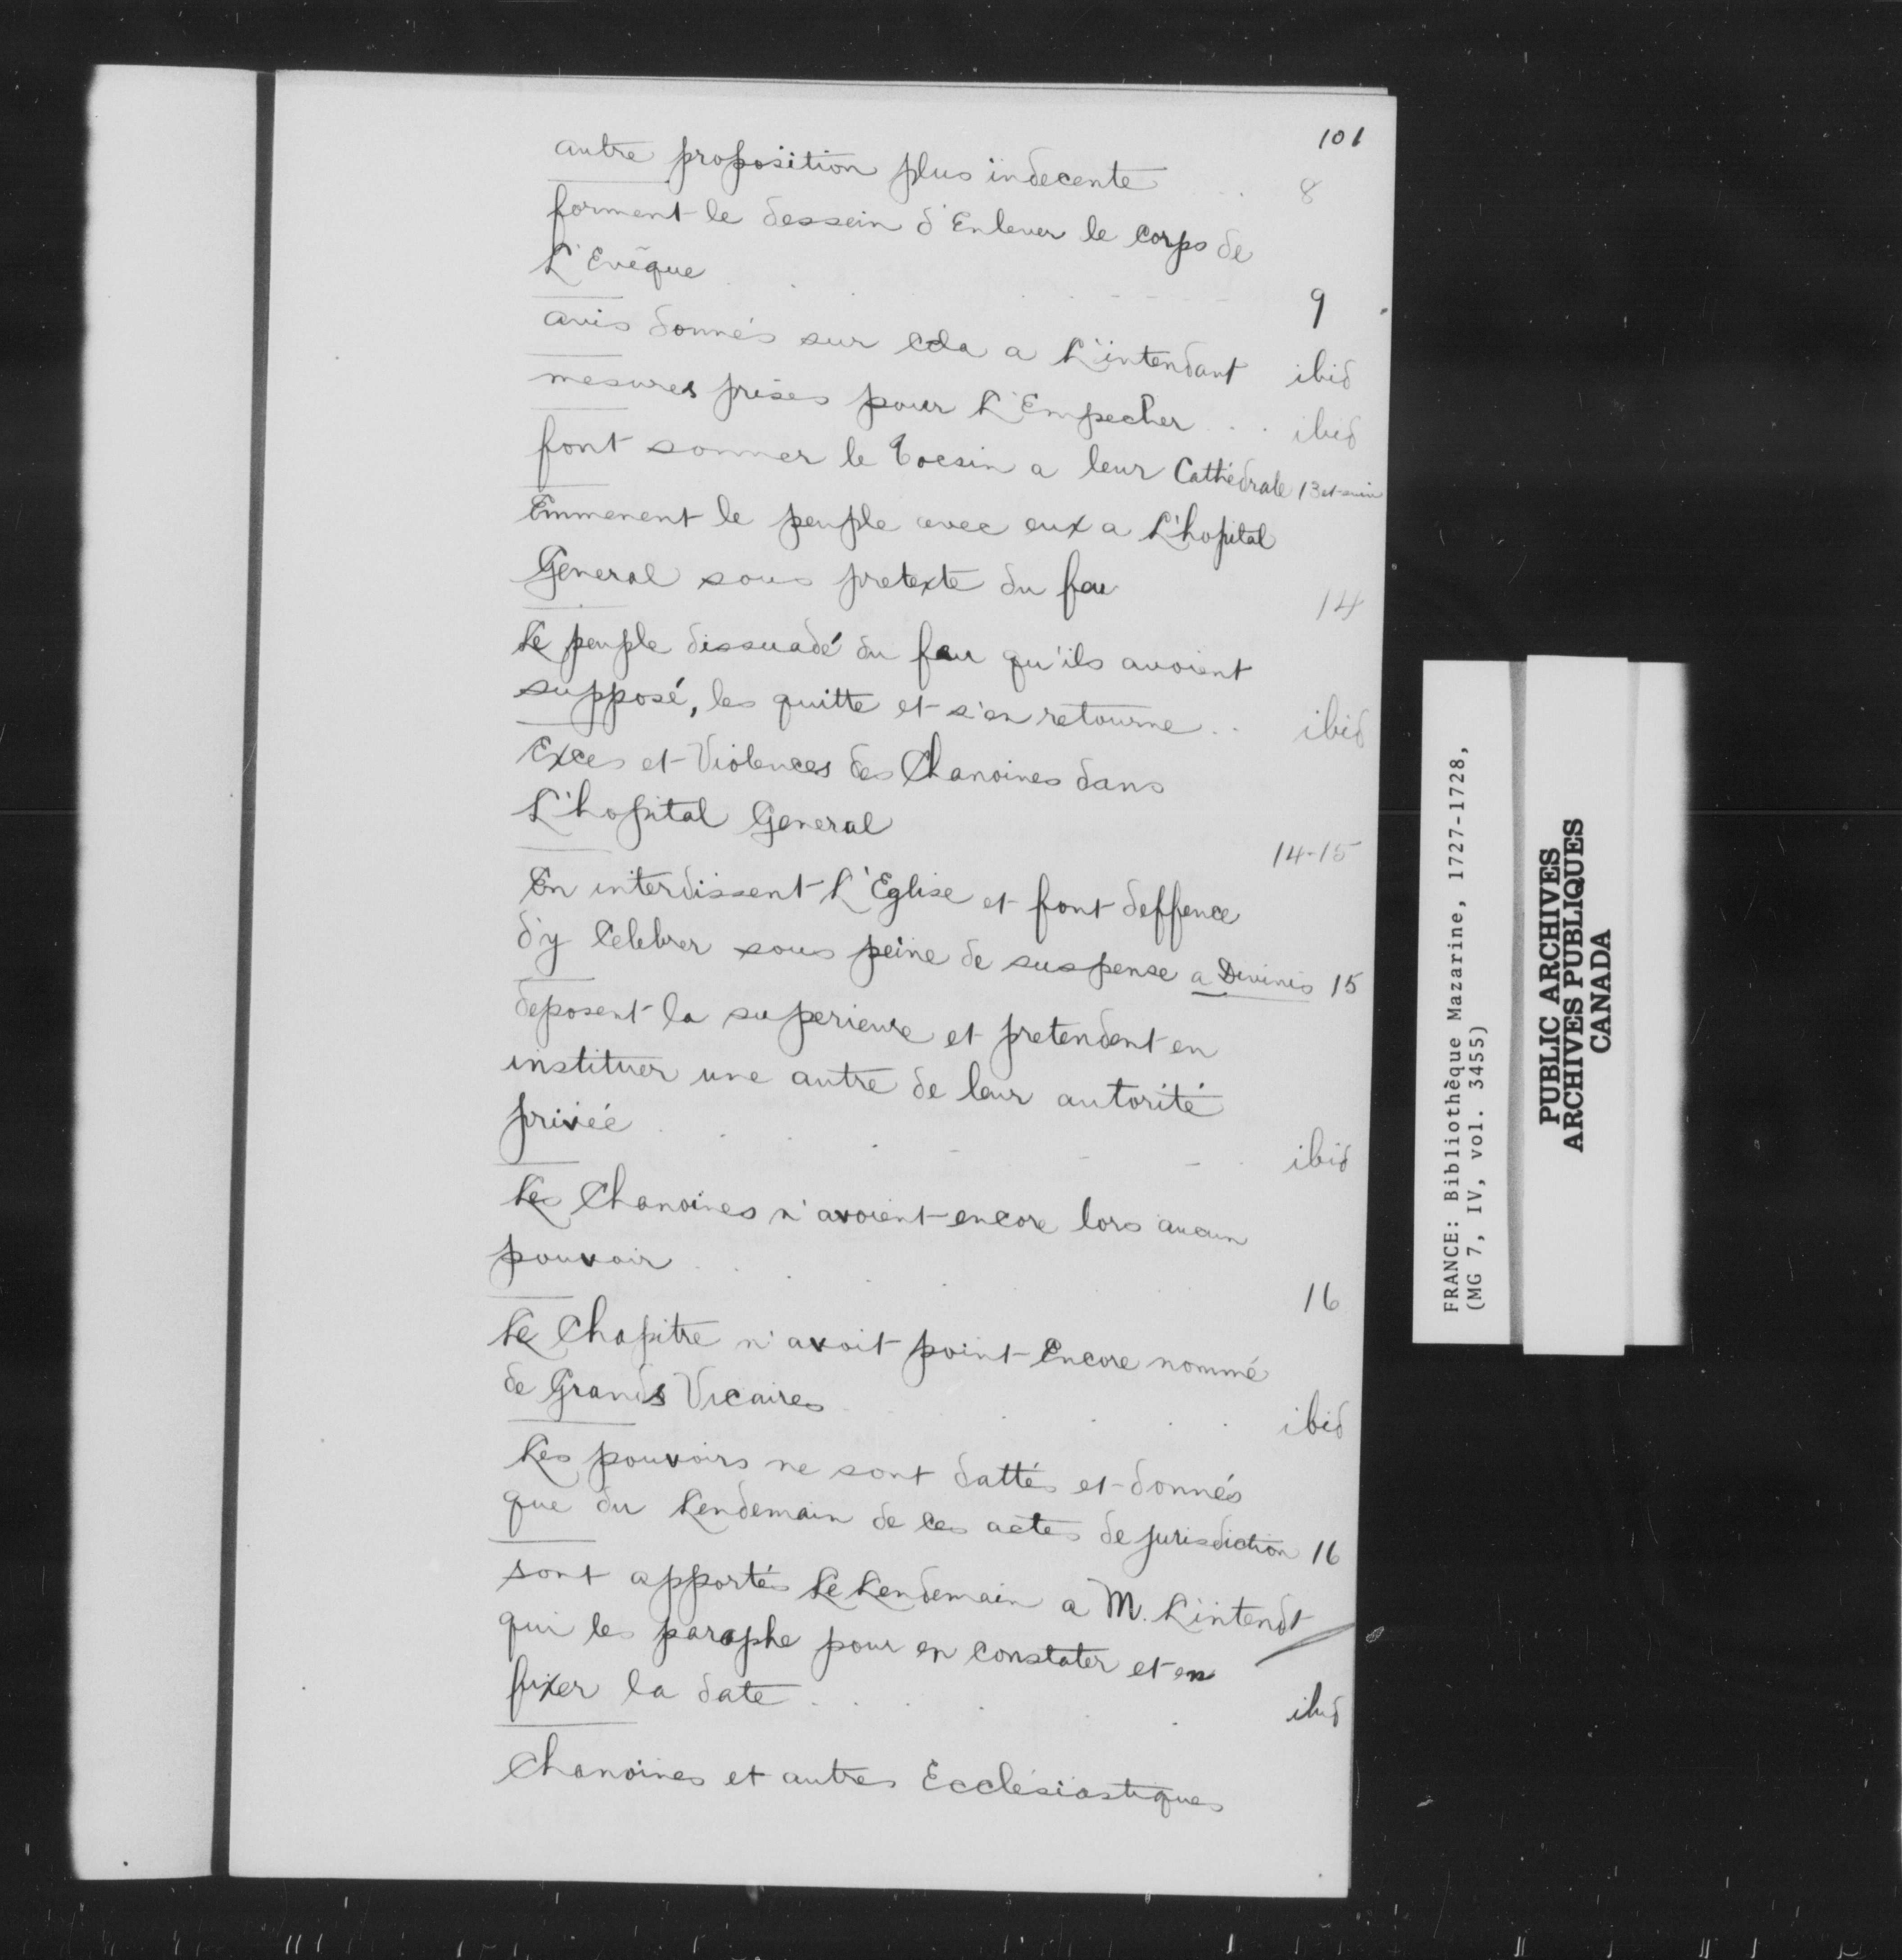 101
autre proposition plus indecente . . 8
forment le dessein d'Enlever le Corps de
L'Evêque . . . . . 9
avis donnés sur Cela a L'intendant ibid
mesures prises pour L'Empecher . . . ibid
font sonner le tocsin a leur Cathédrale 13 et suiv
Emmenent le peuple avec eux a L'hopital
General sous pretexte du feu 14
Le peuple dissuadé du feu qu'ils avoient
supposé, les quitte et s'en retourne . . ibid
Exces et Violences des Chanoines dans
L'hopital General 14-15
En interdissent L'Eglise et font deffence
d'y Celebrer sous peine de suspense a Divinis 15
deposent la superieure et pretendent en
instituer une autre de leur autorité
privée . . . . . ibid
Les Chanoines n'avoient encore lors aucun
pouvoir . . . . 16
Le Chapitre n'avoit point Encore nommé
de Grands Vicaires . . . . ibid
Les pouvoirs ne sont dattés et donnés
que du Lendemain de Ces actes de jurisdiction 16
sont apportés Le Lendemain a M. L'intendt
qui les paraphe pour en Constater et en
fixer la date . . . . ibid
Chanoines et autres Ecclésiastiques
FRANCE: Bibliothèque Mazarine, 1727-1728,
(MG 7, IV, vol. 3455)
PUBLIC ARCHIVES
ARCHIVES PUBLIQUES
CANADA